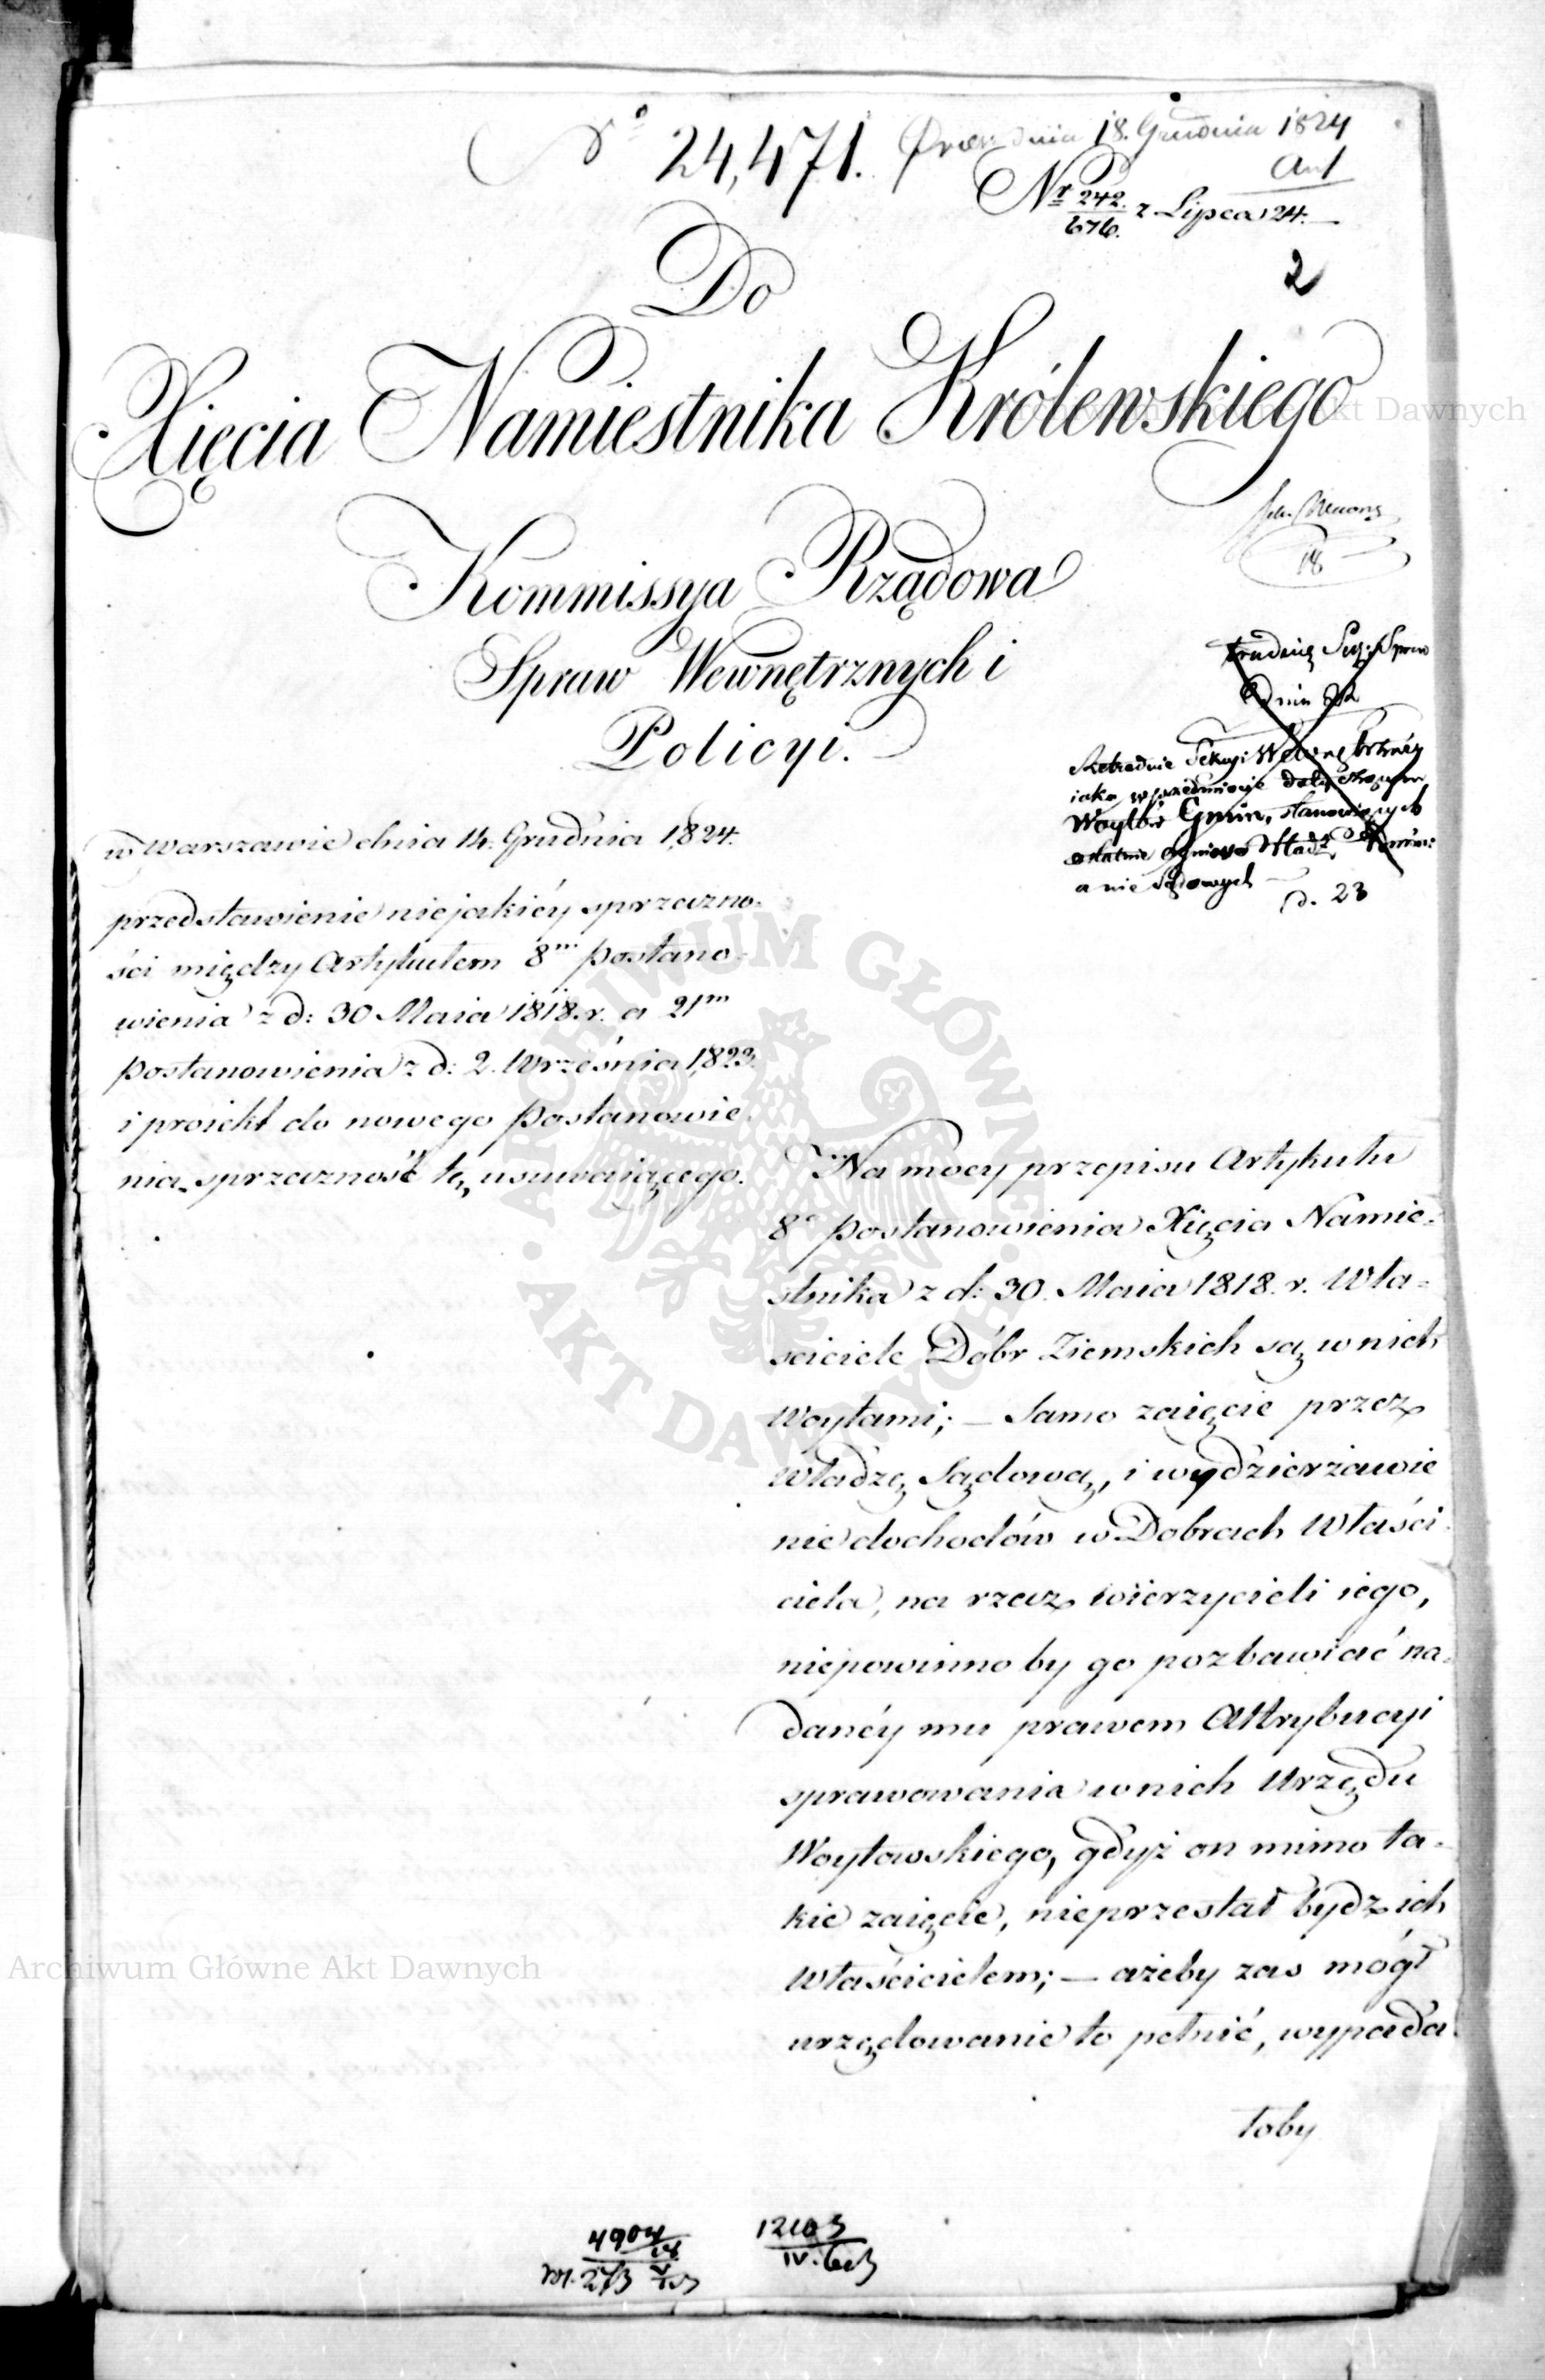 No 24,471.
Præs. dnia 18. Grudnia 1824
Nr 242. / 676. z Lipca 24.
2
Do
Xięcia Namiestnika Królewskiego
18
Kommissya Rządowa
Spraw Wewnętrznych i
Policyi.
dnia
Sekcyi
iako w przedmiocie
Woytów Gmin, stanowiących
ostatnie ogniwo Władz
a nie Sądowych
d. 23
w Warszawie dnia 14. Grudnia 1824.
przedstawienie niejakiéy sprzeczno-
ści między Artykułem 8m postano-
wienia z d: 30 Maia 1818. r. a 21m
postanowienia z d: 2. Września 1823.
i proiekt do nowego postanowie-
nia, sprzeczność tę usuwaiącego.
Na mocy przepisu Artykułu
8o postanowienia Xięcia Namie-
stnika z d: 30. Maia 1818. r. Wła-
sciciele Dóbr Ziemskich są w nich
Woytami; — Samo zaięcie przez
Władzę Sądową, i wydzierżawie
nie dochodów w Dobrach Właści-
ciela, na rzecz wierzycieli iego,
niepowinno by go pozbawiać na-
danéy mu prawem Attrybucyi
sprawowania w nich Urzędu
Woytowskiego, gdyż on mimo ta-
kie zaięcie, nieprzestał bydz ich
Właścicielem; — ażeby zas mógł
urzędowanie to pełnić, wypada
łoby
4904
12103
Archiwum Główne Akt Dawnych
ARCHIWUM GŁÓWNE • AKT DAWNYCH •
Archiwum Główne Akt Dawnych